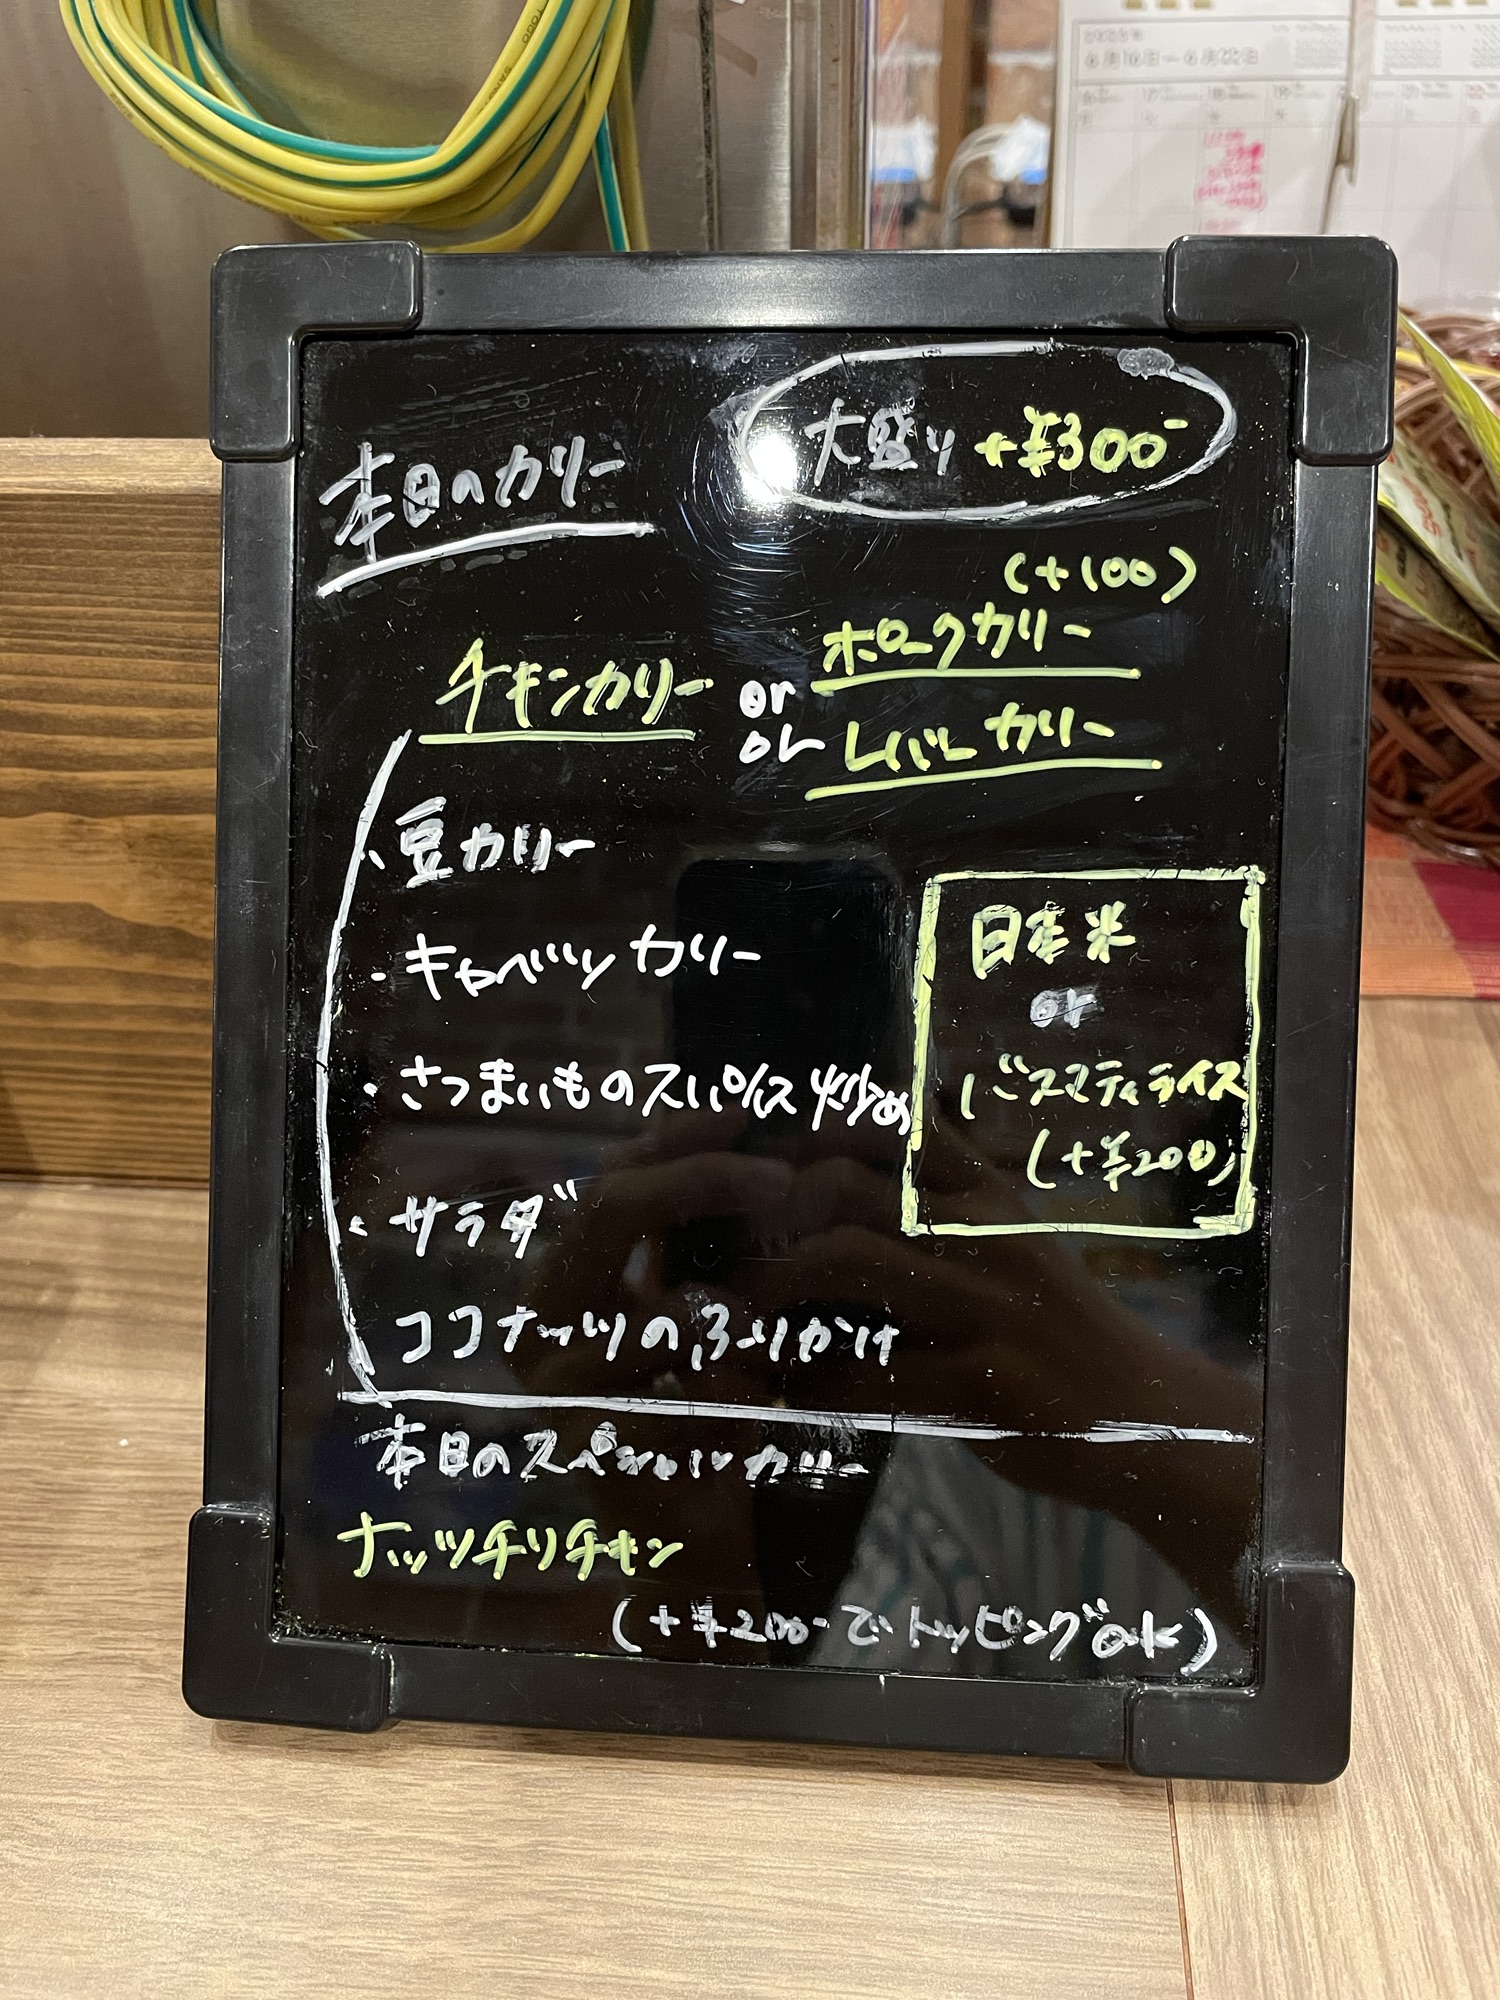 6月16日〜6月22日
大盛り +¥300-
本日のカリー
(+100)
チキンカリー or ポークカリー
or レバーカリー
・豆カリー
・キャベツカリー
・さつまいものスパイス炒め
・サラダ
ココナッツのふりかけ
日本米
or
バスマティライス
(+¥200)
本日のスペシャルカリー
ナッツチリチキン
(+¥200-でトッピングok)